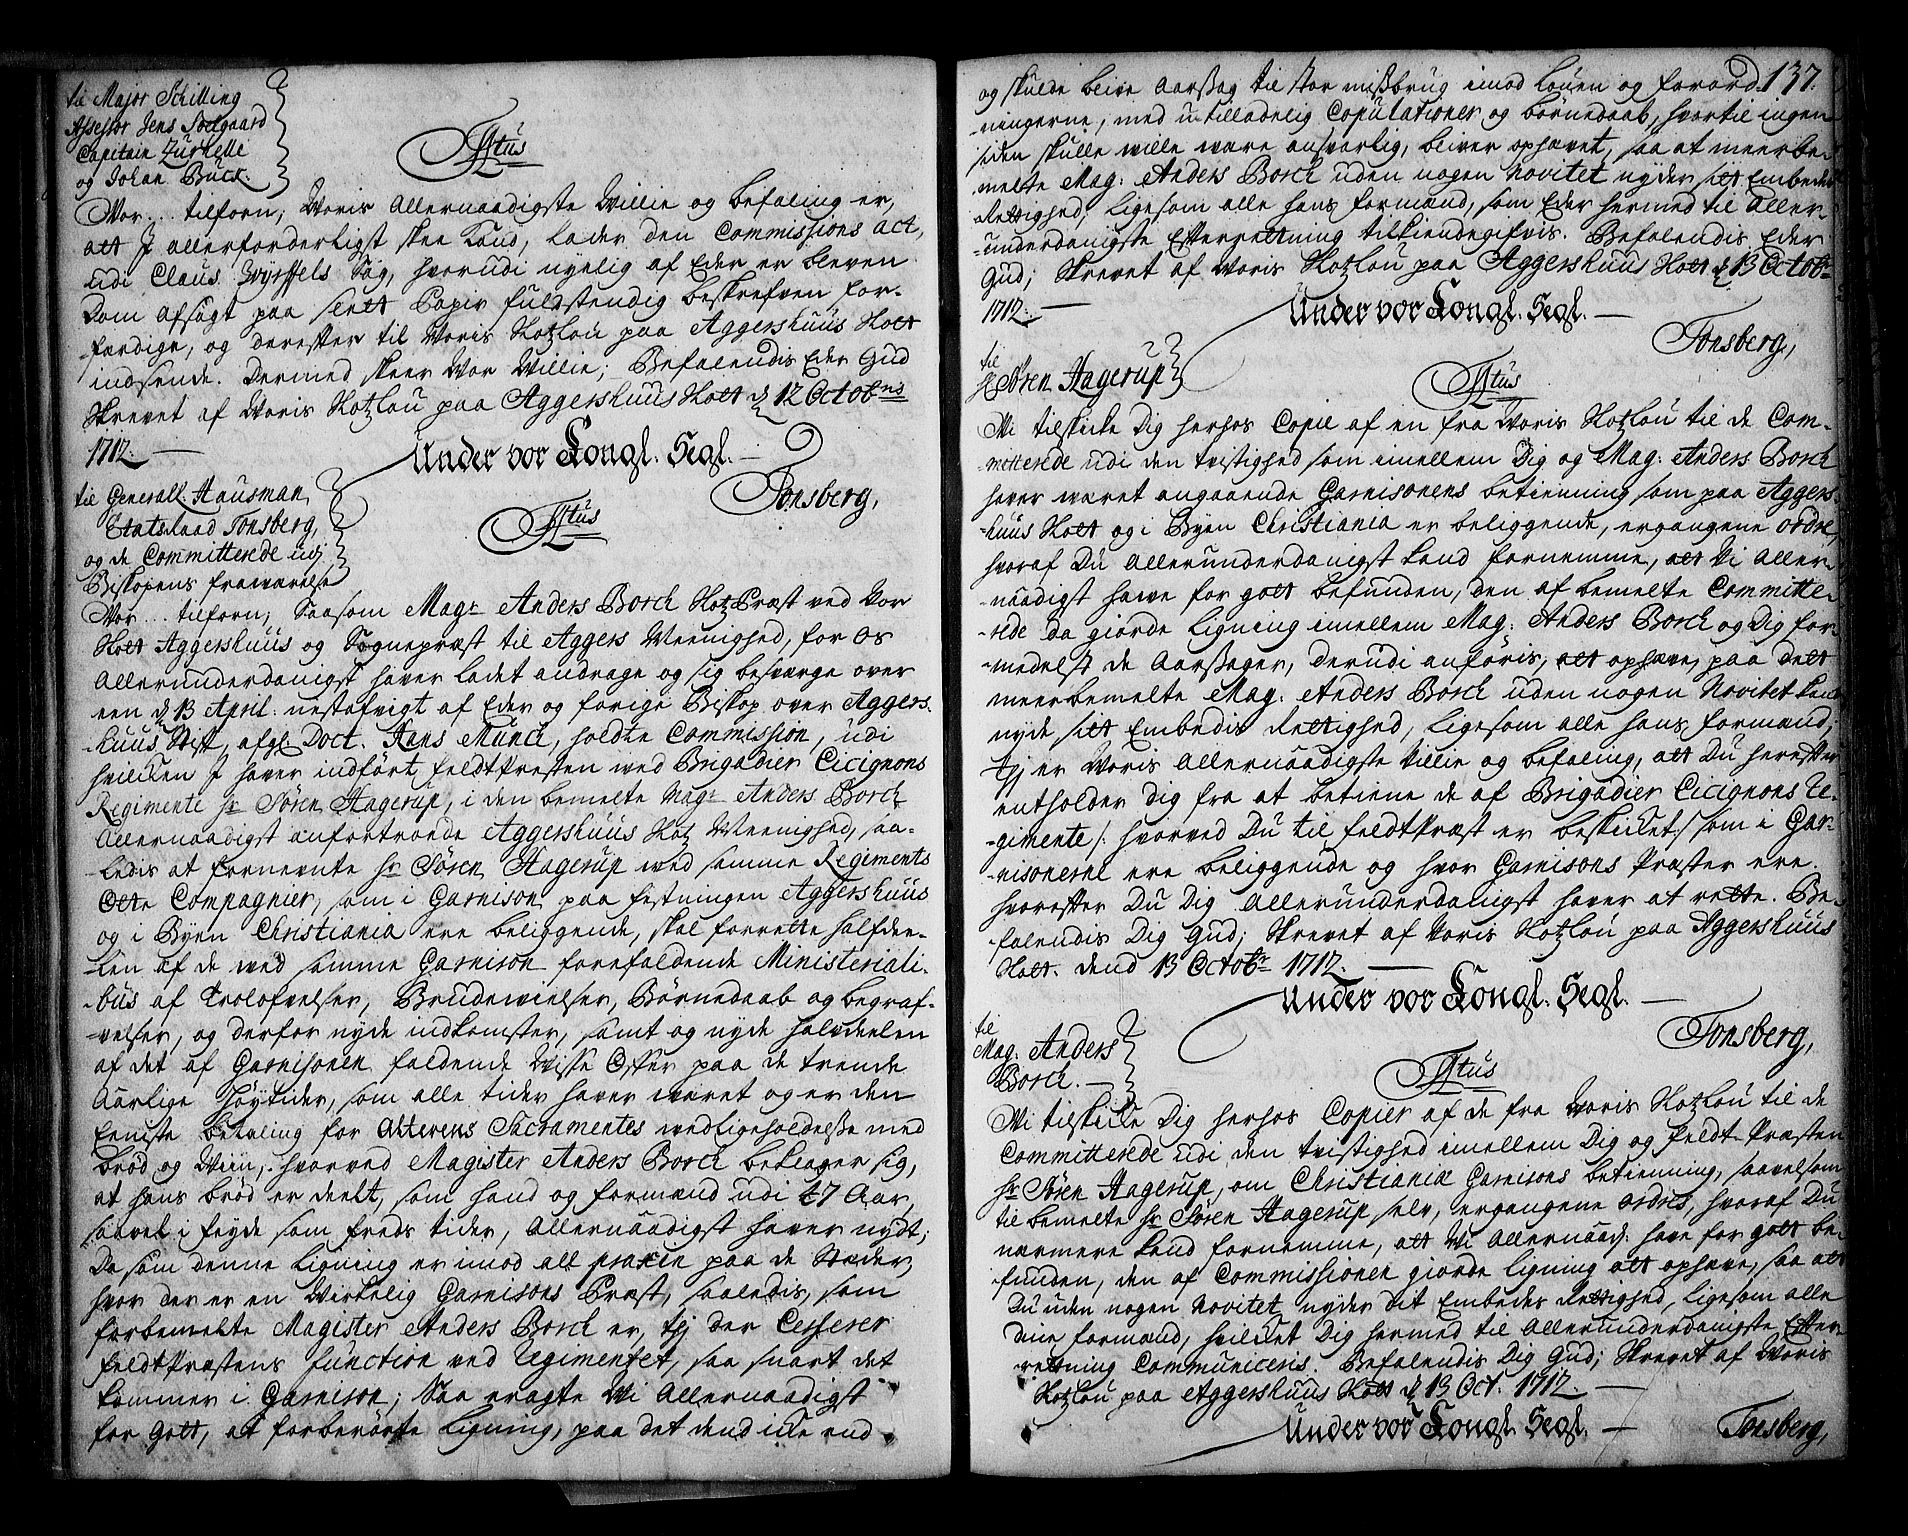 til Major Schilling
Assessor Jens Soelgaard
Capitain Zurhelle
og Johan Buck.
Ftus
Vor... tilforn, Voris Allernaadigste Villie og befaling er,
att I allerforderligst skee kand, lader den Commissions act,
udi Claus Wyrffels Sag, hvorudi nylig af Eder er bleven
Dom afsagt paa slett Papir fuldstendig beskrefven for-
færdige, og derefter til Voris Slotzlou paa Aggershuus Slott
indsende. Dermed skeer Vor Villie; Befalendis Eder Gud
Skrevet af Voris Slotzlou paa Aggershuus Slott d 12 Octobris
1712.
Under vor Kongl. Segl.
Tonsberg,
til Generall: Hausman,
Etatsraad Tonsberg,
og de Committerede udj
Biskopens fraværelse
Ftus
Vor... tilforn, Saasom Magr Anders Borch SlotzPræst ved Vor
Slott Aggershuus og Sognepræst til Aggers Meenighed, for os
Allerunderdanigst haver ladet andrage og sig besværge over
een d 13 April: nestafvigt af Eder og forige Biskop over Aggers-
huus Stift, afgl Doct. Hans Munck, holdte Commission, udi
hvilcken I haver indført feldtPræsten ved Brigadier Cicignons
Regimente hr Søren Hagerup, i den bemelte Magr Anders Borch
Allernaadigst anfortroede Aggershuus Slotz Meenighed, saa-
ledis at fornevnte hr Søren Hagerup ved samme Regiments
Otte Compagnier, som i Garnison paa festningen Aggershuus
og i Byen Christiania ere beliggende, skal forrette halfdee-
len af de ved samme Garnison forefaldende Ministeriali-
bus af Trolofvelser, Brudevielser, Børnedaab og begraf-
velser, og derfor nyde indkomster, samt og nyde halvdeelen
af det af Garnisonen faldende Visse Offer paa de trende
Aarlige Høytider, som alle tider haver været og er den
Eeniste betaling for Alterens Sacramentes vedligeholdelse med
brød og Viin, hvorved Magister Anders Borch beklager sig,
at hans brød er deelt, som hand og formænd udi 27 Aar,
saavel i feyde som freds tider, Allernaadigst haver nydt;
Da som denne ligning er imod all praxin paa de Stæder,
hvor der er en Virkelig Garnisons Præst, saaledis, som
forbemelte Magister Anders Borch er, thj der Cesserer
feldtPræstens function ved Regimentet, saa snart det
kommer i Garnison; Saa eragte Vi Allernaadigst
for Gott, at forberørte ligning, paa det dend icke end
137.
og skulde blive Aarsag til stor misbrug imod Loven og forord-
ningerne, med utilladelig Copulationer og børnedaab, hvortil ingen
siden skulle ville være ansvarlig, bliver ophævet, saa at meerbe-
melte Mag: Anders Borch uden nogen Novitet nyder sitt Embedes
Rettighed, ligesom alle hans formænd, som Eder hermed til Aller-
underdanigste Efterrettning tilkiendegifvis. Befalendis Eder
Gud; Skrevet af Voris Slotzlou paa Aggershuus Slott d 13 Octobr
1712.
Under vor Kongl. Segl.
Tonsberg,
til
hr Søren Hagerup
Ftus
Vi tilskicke Dig herhos Copie af en fra Voris Slotzlou til de Com-
mitterede udi den tvistighed som imellem Dig og Mag: Anders Borch
haver været angaaende Garnisonens betienning som paa Aggers-
huus Slott og i Byen Christiania er beliggende, ergangene ordre,
hvoraf Du Allerunderdanigst kand fornemme, att Vi Aller-
naadigst have for gott befunden, den af bemelte Committe-
rede da giorde ligning imellem Mag: Anders Borch og Dig for-
medelst de Aarsager, derudi anføris, att ophæve, paa dett
meerbemelte Mag: Anders Borch uden nogen Novitet kand
nyde sitt Embedis Rettighed, ligesom alle hans formænd;
Thj er Voris Allernaadigste Villie og befaling, att Du herefter
entholder Dig fra at betiene de af Brigadier Cicignons Re-
gimente /: hvorved Du til feldtPræst er beskicket :/ som i Gar-
nisonerne ere beliggende og hvor Garnisons Præster ere.
hvorefter Du Dig Allerunderdanigst haver at rette. Be-
falendis Dig Gud; Skrevet af Voris Slotzlou paa Aggershuus
Slott. dend 13 Octobr 1712.
Under vor Kongl. Segl.
Tonsberg,
til
Mag: Anders
Borch.
Ftus
Vi tilskicke Dig herhos Copier af de fra Voris Slotzlou til de
Committerede udi den tvistighed imellem Dig og feldt-Præsten
hr Søren Hagerup, om Christianiæ Garnisons betienning, saavelsom
til bemelte hr Søren Hagerup selv, ergangene ordres, hvoraf Du
nærmere kand fornemme, att Vi Allernaad: have for gott be-
funden, den af Commissionen giorde ligning att ophæve, saa att
Du uden nogen Novitet nyder dit Embedes Rettighed, ligesom alle
dine formænd, hvilcket Dig hermed til Allerunderdanigste Efter-
rettning Communiceris. Befalendis Dig Gud; Skrevet af Voris
Slotzlou paa Aggershuus Slott d 13 Oct. 1712.
Under vor Kongl. Segl.
Tonsberg,